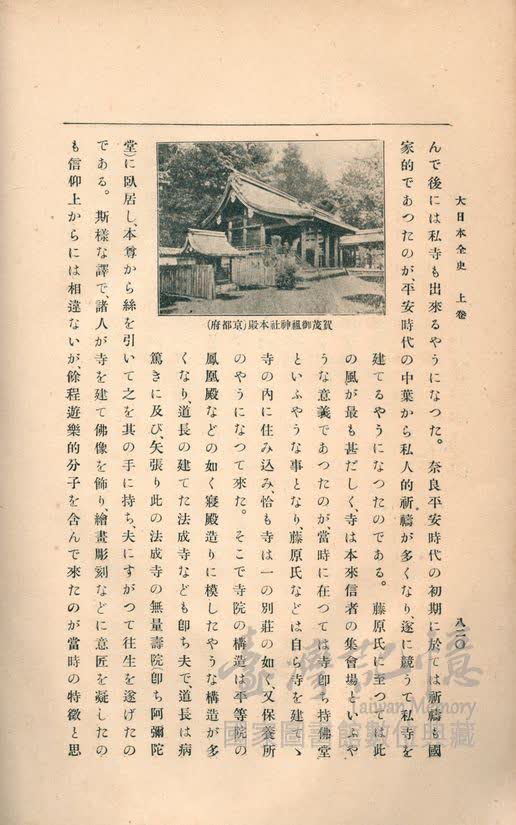 大日本全史　上卷
八二〇
んで後には私寺も出來るやうになつた。奈良平安時代の初期に於ては祈禱も國
家的であつたのが、平安時代の中葉から私人的祈禱が多くなり、遂に競うて私寺を
建てるやうになつたのである。藤原氏に至つては此
の風が最も甚だしく、寺は本來信者の集會場といふや
うな意義であつたのが、當時に在つては寺卽ち持佛堂
といふやうな事となり、藤原氏などは自ら寺を建てゝ
寺の內に住み込み、恰も寺は一の別莊の如く、又保養所
のやうになつて來た。そこで寺院の構造は平等院の
鳳凰殿などの如く寢殿造りに模したやうな構造が多
くなり、道長の建てた法成寺なども卽ち夫で、道長は病
篤きに及び、矢張り此の法成寺の無量壽院(卽ち阿彌陀
堂)に臥居し、本尊から絲を引いて之を其の手に持ち、夫にすがつて往生を遂げたの
である。斯樣な譯で、諸人が寺を建て佛像を飾り、繪畫彫刻などに意匠を凝したの
も信仰上からには相違ないが、餘程遊樂的分子を含んで來たのが當時の特徵と思
賀茂御祖神社本殿(京都府)
臺灣記憶
Taiwan Memory
國家圖書館數位典藏